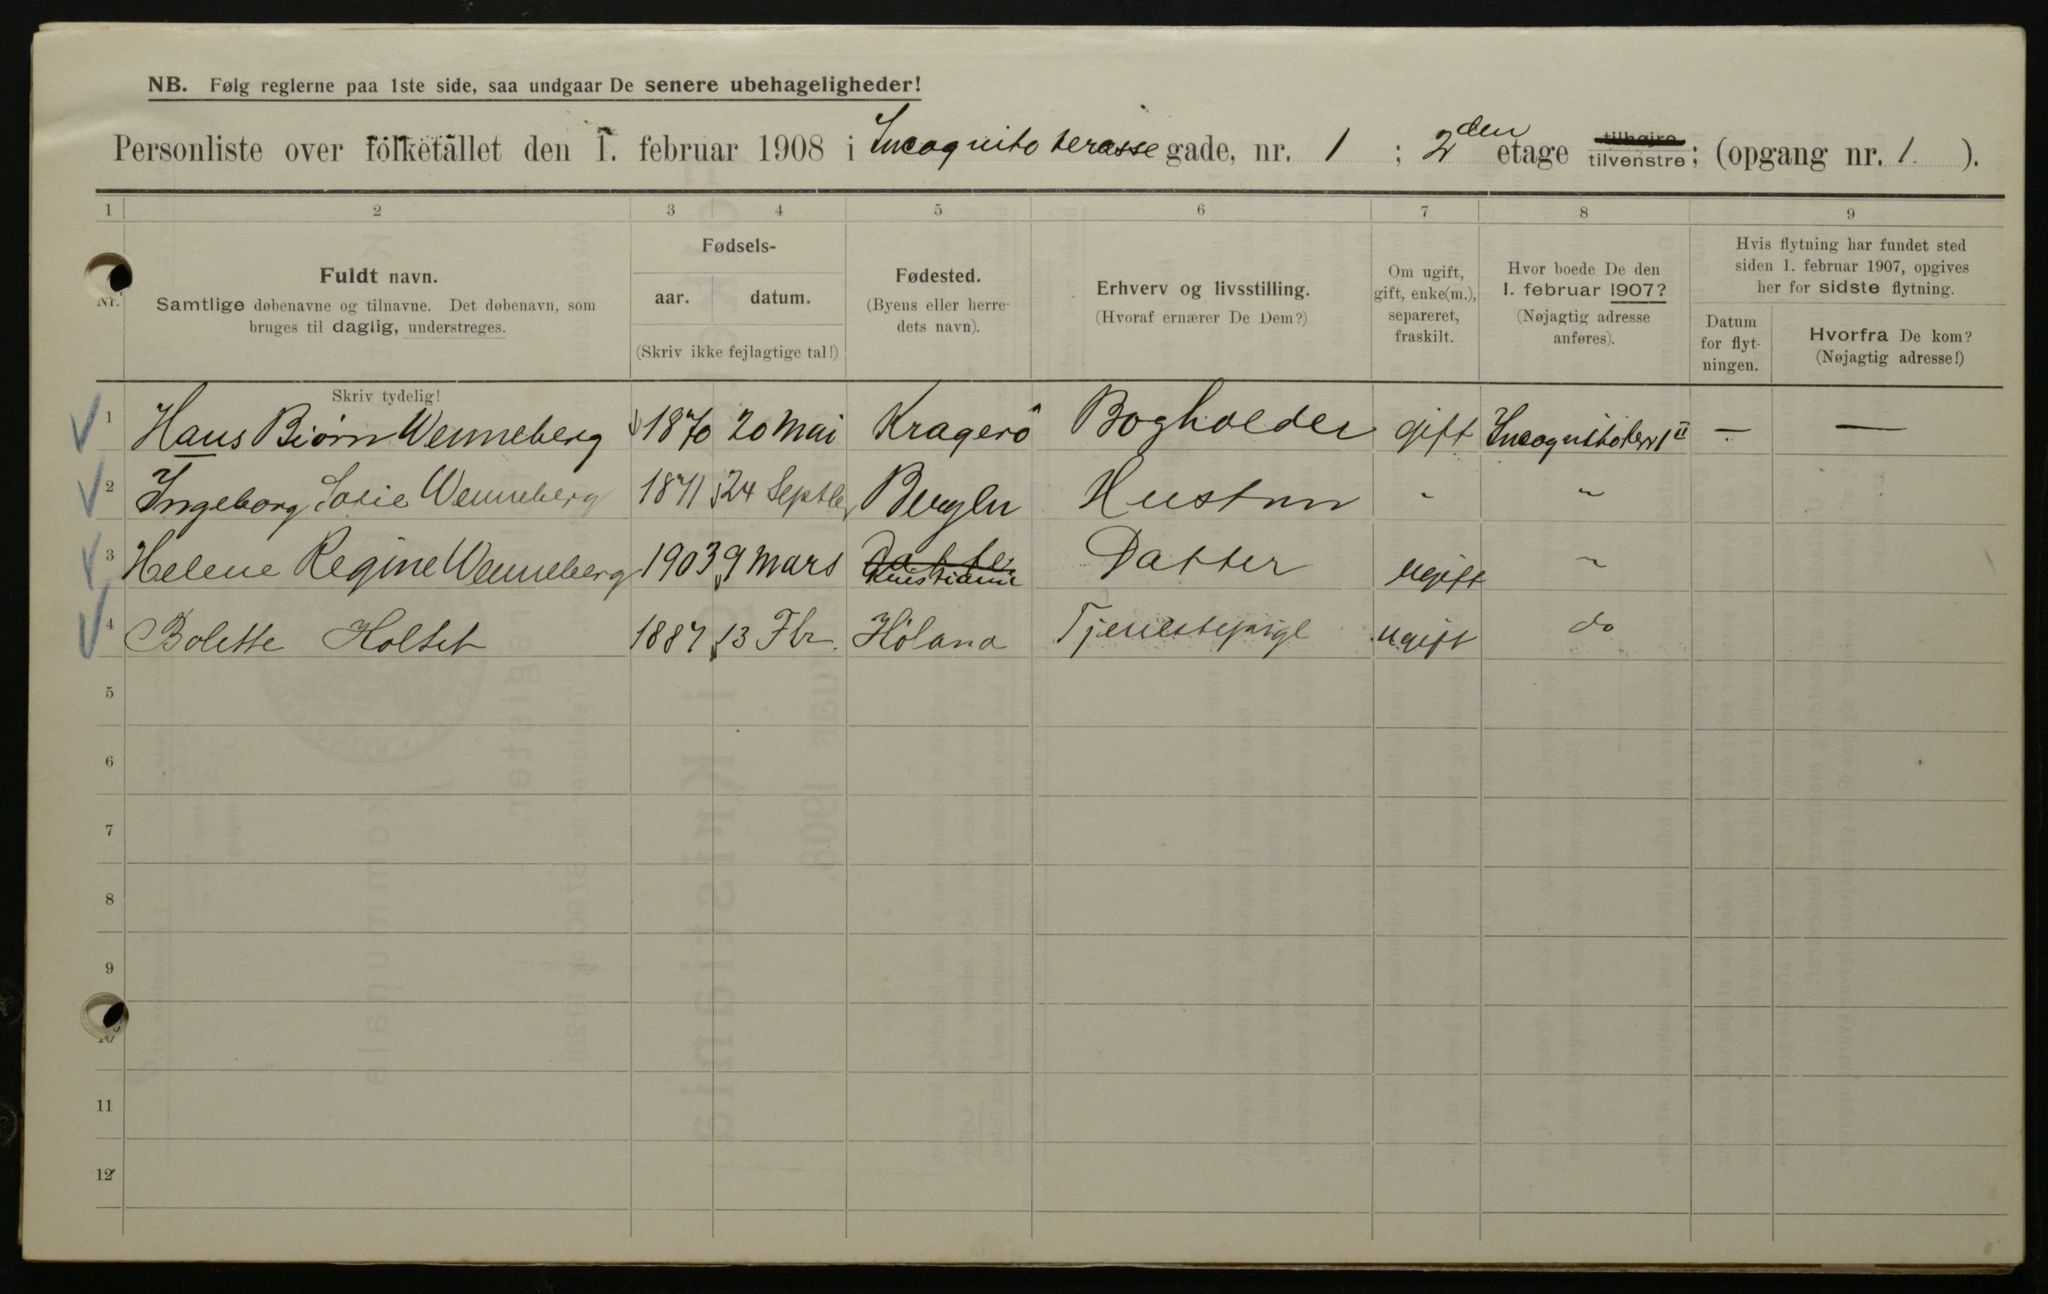 NB. Følg reglerne paa 1ste side, saa undgaar De senere ubehageligheder!
Personliste over folketallet den 1. februar 1908 i Incognito terasse gade, nr. 1 ; 2den etage tilhøjre tilvenstre; (opgang nr. 1. ).
1 2 3 4 5 6 7 8 9
Nr.
Fuldt navn.
Samtlige døbenavne og tilnavne. Det døbenavn, som
bruges til daglig, understreges.
Skriv tydelig!
Fødsels-
aar. datum.
(Skriv ikke fejlagtige tal!)
Fødested.
(Byens eller herre-
dets navn).
Erhverv og livsstilling.
(Hvoraf ernærer De Dem?)
Om ugift,
gift, enke(m.),
separeret,
fraskilt.
Hvor boede De den
1. februar 1907?
(Nøjagtig adresse
anføres).
Hvis flytning har fundet sted
siden 1. februar 1907, opgives
her for sidste flytning.
Datum
for flyt-
ningen.
Hvorfra De kom?
(Nøjagtig adresse!)
1 Hans Biørn Wenneberg 1870 20 Mai Kragerö Bogholder gift Incognitoterr 1 II — —
2 Ingeborg Sofie Wenneberg 1871 24 Septbr Bergen Hustru " "
3 Helene Regine Wenneberg 1903 9 Mars Datter Kristiania Datter ugift "
4 Bolette Holtet 1887 13 Fbr. Höland Tjenestepige ugift do
5
6
7
8
9
10
11
12